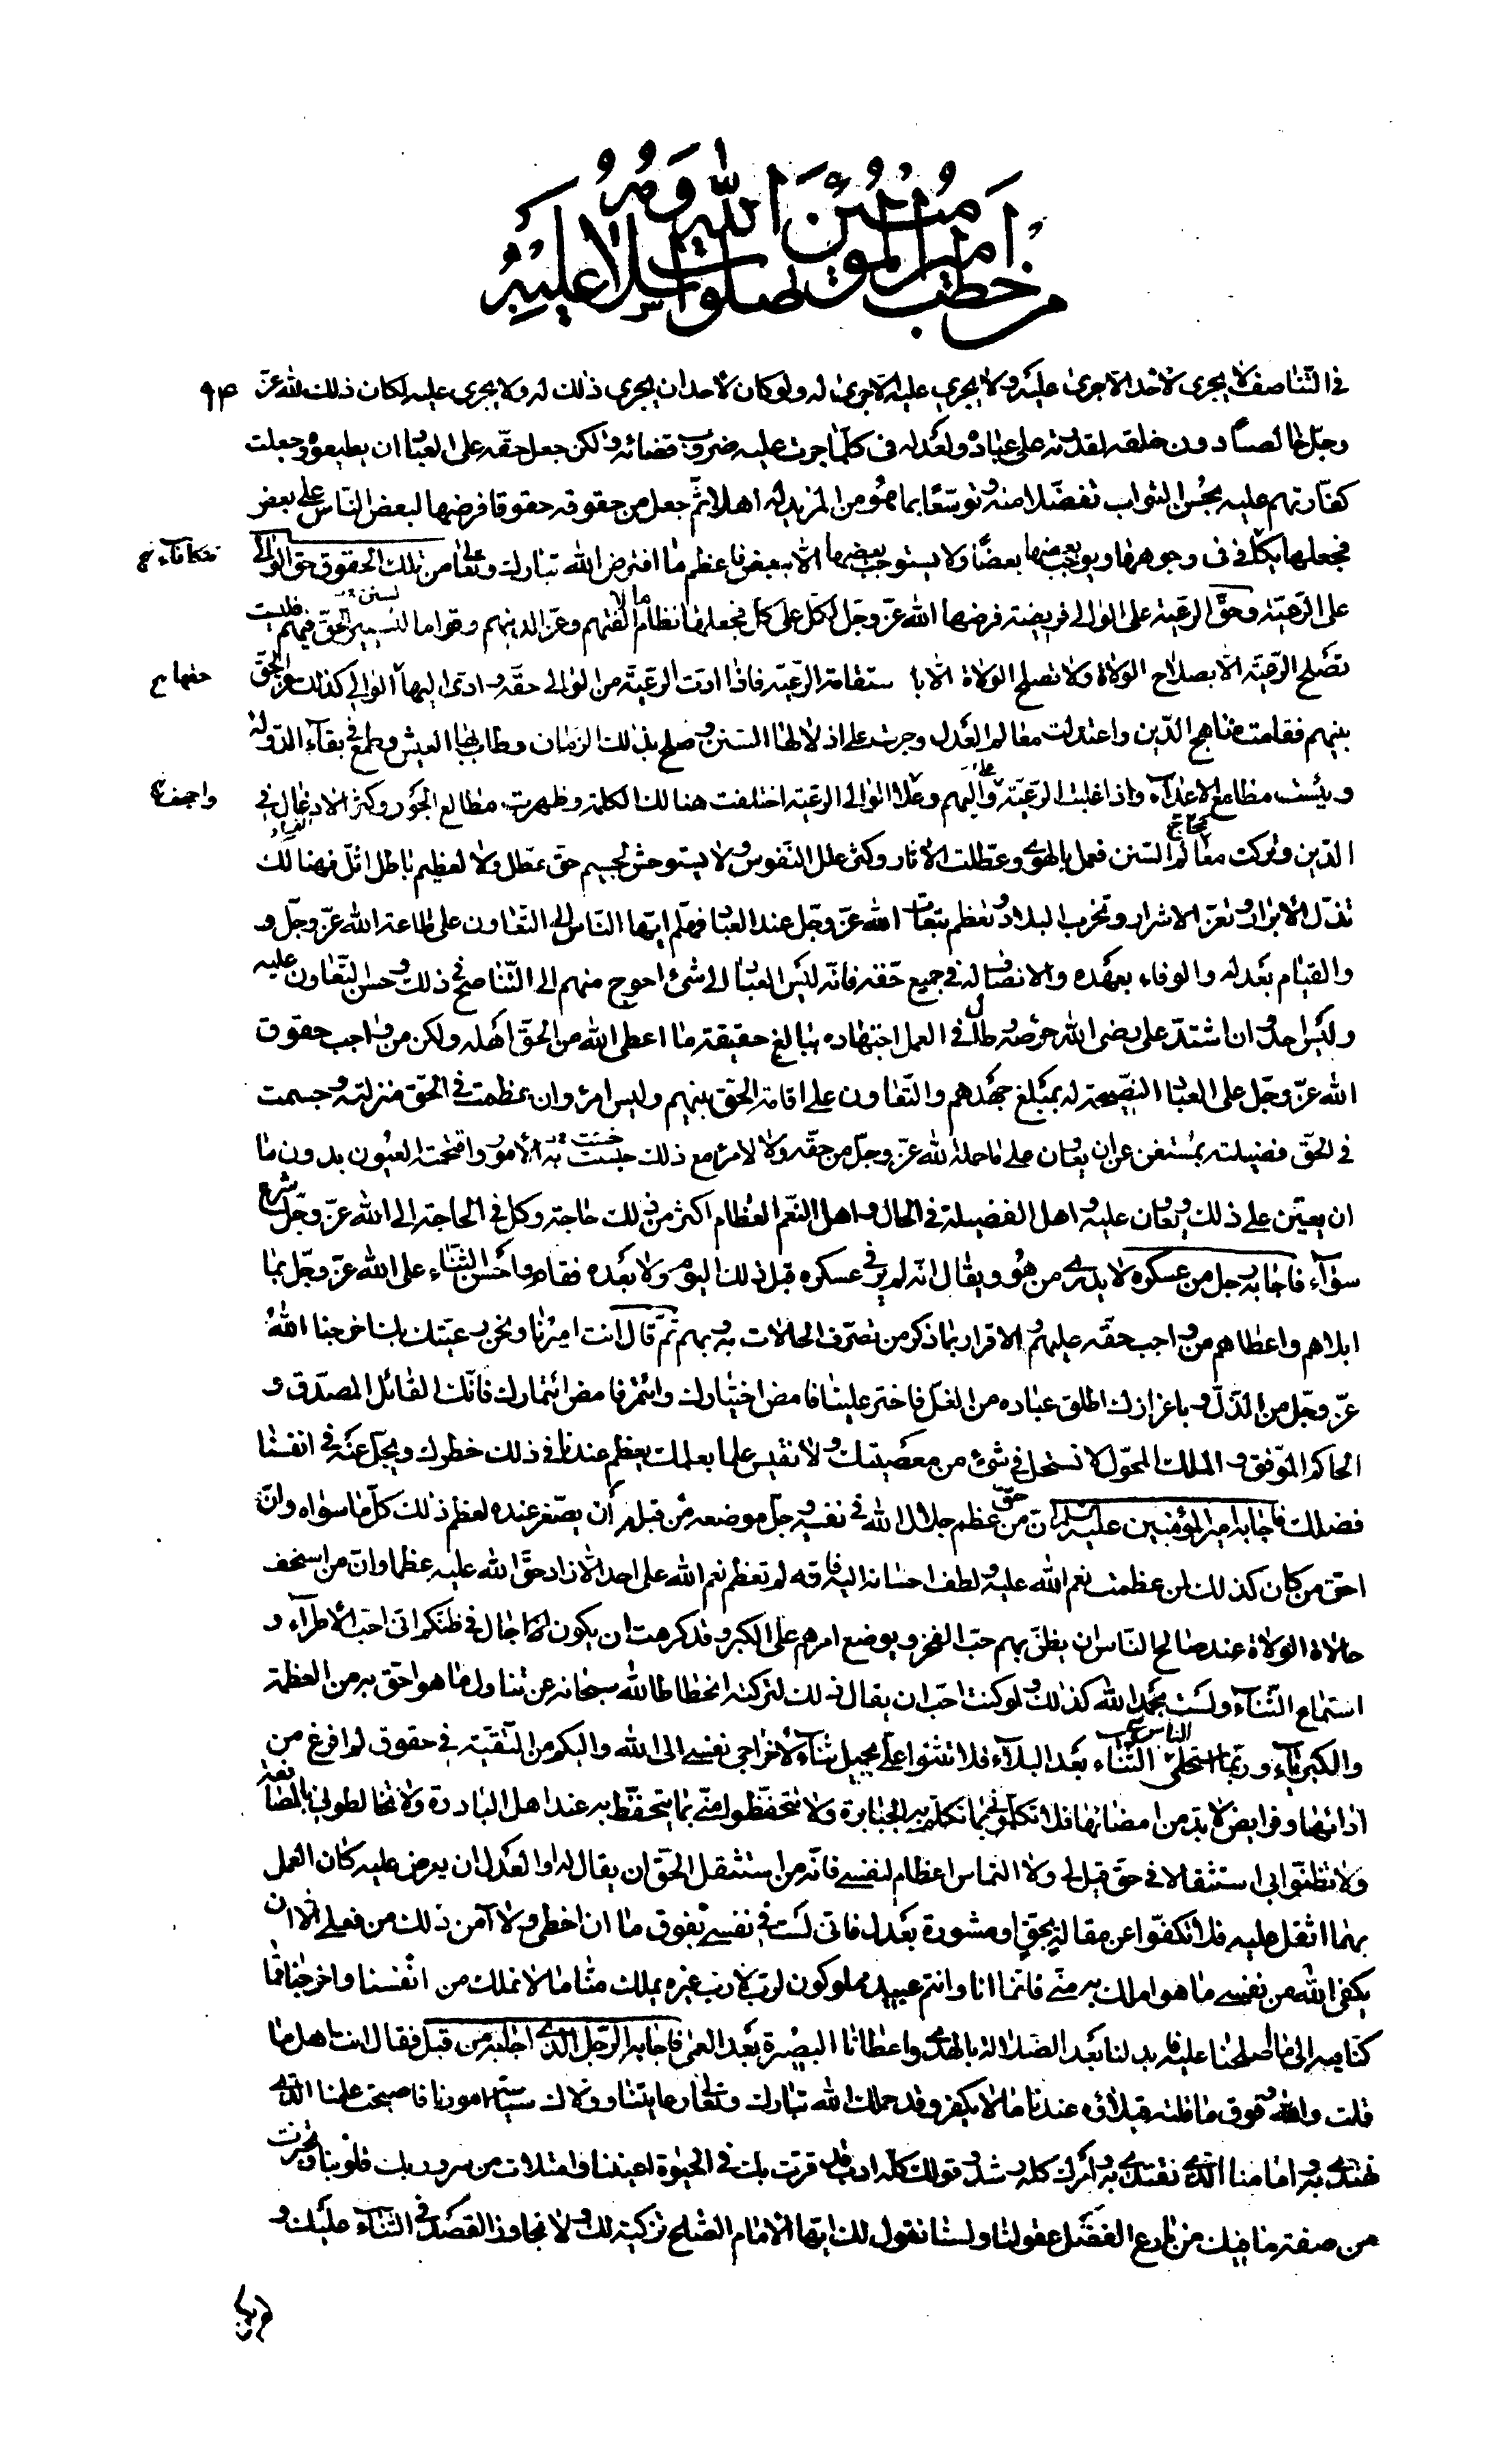 من خطب امير المؤمنين صلوات الله وسلامه عليه
٩٤
فى التناصف لا يجرى لأحد الا جرى عليه ولا يجرى عليه الا جرى له ولو كان لأحد ان يجرى ذلك له ولا يجرى عليه لكان ذلك لله عزّ
وجلّ خالصاً دون خلقه لقدرته على عباده ولعدله فى كلّما جرت عليه ضروب قضائه ولكن جعل حقّه على العباد ان يطيعوه وجعلت
كفّارتهم عليه بحسن الثواب تفضّلا منه وتوسّعًا بما هو من المزيد له اهلا ثمّ جعل من حقوقه حقوقا فرضها لبعض الناس على بعض
فجعلها تتكافى فى وجوهها ويوجب بعضها بعضًا ولا يستوجب بعضها الّا ببعض فاعظم ما افترض الله تبارك وتعالى من تلك الحقوق حق الوالى
تتكافأ خ
على الرّعيّة وحقّ الرعيّة على الوالى فريضة فرضها الله عزّ وجلّ لكلّ على كلّ فجعلها نظام الفتهم وعزّا لدينهم وقواما لسنن الحقّ فيهم فليست
تصلح الرّعيّة الّا بصلاح الولاة ولا تصلح الولاة الّا باستقامة الرّعيّة فاذا ادّت الرعيّة من الوالى حقّه وادّى اليها الوالى كذلك عزّ الحقّ
حقها خ
بينهم فقامت مناهج الدّين واعتدلت معالم العدل وجرت على اذلالها السنن وصلح بذلك الزمان وطاب بها العيش وطمع فى بقآء الدّولة
ويئست مطامع الاعدآء واذا غلبت الرّعيّة واليهم وعلا الوالى الرعيّة اختلفت هنالك الكلمة وظهرت مطالع الجور وكثر الادغال فى
واجحف خ
الدّين وتركت معالم السّنن فعمل بالهوى وعطّلت الآثار وكثر علل النّفوس ولا يستوحش لجسيم حقّ عطّل ولا لعظيم باطل اثّل فهنالك
تذلّ الأبرار وتعزّ الاشرار وتخرب البلاد وتعظم تبعات الله عزّ وجلّ عند العباد فهلمّ ايّها النّاس الى التّعاون على طاعة الله عزّ وجلّ و
والقيام بعدله والوفاء بعهده والانصاف له فى جميع حقّه فانّه ليس العباد الى شىء احوج منهم الى التّناصح فى ذلك وحسن التّعاون عليه
وليس احد وان اشتدّ على رضى الله حرصه وطال فى العمل اجتهاده ببالغ حقيقة ما اعطى الله من الحقّ اهله ولكن من واجب حقوق
الله عزّ وجلّ على العباد النّصيحة له بمبلغ جهدهم والتّعاون على اقامة الحقّ بينهم وليس امرء وان عظمت فى الحقّ منزلته وجسمت
فى الحقّ فضيلته بمستغن عن ان يعان على ما حمله الله عزّ وجلّ من حقّه ولا لامرئ مع ذلك خسئت به الأمور واقتحمته العيون بدون ما
ان يعين على ذلك ويعان عليه واهل الفضيلة فى الحال واهل النّعم العظام اكثر من ذلك حاجة وكل فى الحاجة الى الله عزّ وجلّ شرع
سوآء فاجابه رجل من عسكره لا يدرى من هو ويقال انّه لم ير فى عسكره قبل ذلك اليوم ولا بعده فقام واحسن الثّناء على الله عزّ وجلّ بما
ابلاهم واعطاهم من واجب حقّه عليهم والاقرار بما ذكر من تصرّف الحالات به وبهم ثمّ قال انت اميرنا ونحن رعيّتك بك اخرجنا الله
عزّ وجلّ من الذّلّ وباعزازك اطلق عباده من الغلّ فاختر علينا فامض اختيارك وائتمر فامض ائتمارك فانّك القائل المصدّق و
الحاكم الموفّق والملك المخوّل لا نستحلّ فى شىء من معصيتك ولا نقيس علما بعلمك يعظم عندنا فى ذلك خطرك ويجلّ عنه فى انفسنا
فضلك فاجابه امير المؤمنين عليه السلام انّ من حقّ من عظم جلال الله فى نفسه وجلّ موضعه من قبله أن يصغر عنده لعظم ذلك كلّ ما سواه وانّ
احق من كان كذلك لمن عظمت نعم الله عليه ولطف احسانه اليه فانه لم تعظم نعم الله على احد الّا زاد حقّ الله عليه عظما وانّ من اسخف
حالات الولاة عند صالح النّاس ان يظنّ بهم حبّ الفخر ويوضع امرهم على الكبر وقد كرهت ان يكون جال فى ظنّكم انّى احبّ الأطرآء و
استماع الثّنآء ولست بحمد الله كذلك ولو كنت احبّ ان يقال ذلك لتركته انحطاطا لله سبحانه عن تناول ما هو احقّ به من العظمة
والكبرياء وربّما استحلى الناس الثّناء بعد البلآء فلا تثنوا علىّ بجميل ثنآء لأخراجى نفسى الى الله واليكم من التّقيّة فى حقوق لم افرغ من
ادائها وفرايض لا بدّ من امضائها فلا تكلّمونى بما تكلّم به الجبابرة ولا تتحفّظوا منّى بما يتحفّظ به عند اهل البادرة ولا تخالطونى بالمصانعة
ولا تظنّوا بى استثقالا فى حقّ قيل لى ولا التماس اعظام لنفسى فانّه من استثقل الحقّ ان يقال له او العدل ان يعرض عليه كان العمل
بهما اثقل عليه فلا تكفّوا عن مقالة بحقّ او مشورة بعدل فانّى لست فى نفسى بفوق ما ان اخطئ ولا آمن ذلك من فعلى الّا ان
يكفى الله من نفسى ما هو املك به منّى فانّما انا وانتم عبيد مملوكون لربّ لا ربّ غيره يملك منّا ما لا نملك من انفسنا واخرجنا ممّا
كنّا فيه الى ما صلحنا عليه فابدلنا بعد الضّلالة بالهدى واعطانا البصيرة بعد العمى فاجابه الرّجل الّذى اجابه من قبل فقال انت اهل ما
قلت والله وفوق ما قلته فبلاؤه عندنا ما لا يكفر وقد حملك الله تبارك وتعالى رعايتنا وولاك سياسة امورنا فاصبحت علمنا الّذى
نهتدى به وامامنا الّذى نقتدى به وأمرك كلّه رشد وقولك كلّه ادب قد قرّت بك فى الحيوة اعيننا وامتلأت من سرور بك قلوبنا وتحيّرت
من صفة ما فيك من بارع الفضل عقولنا ولسنا نقول لك ايّها الامام الصّالح تزكية لك ولا نجاوز القصد فى الثّنآء عليك و